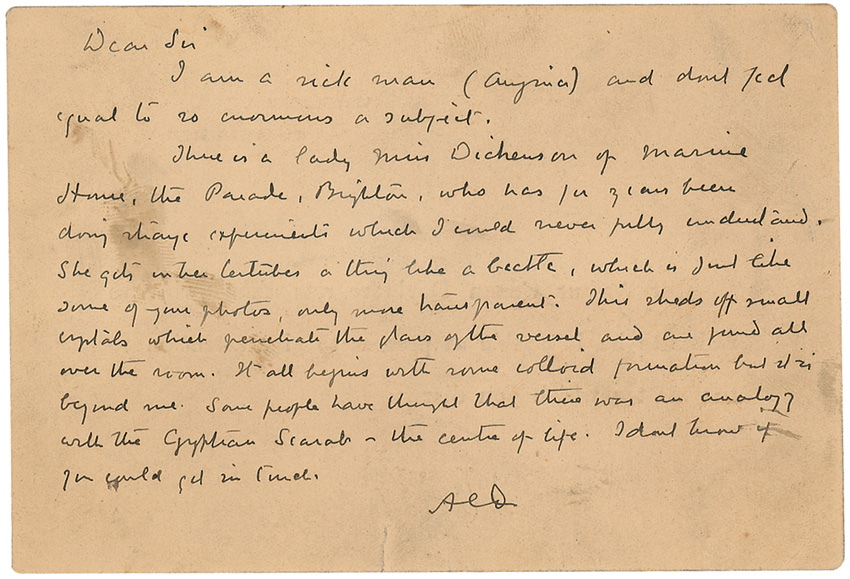 Dear Sir
I am a sick man (Angina) and dont feel
equal to so enormous a subject.
There is a lady Miss Dickenson of Marine
House, the Parade, Brighton, who has for years been
doing strange experiments which I could never fully understand.
She gets in her testubes a thing like a beetle, which is just like
some of your photos, only more transparent. This sheds off small
crystals which penetrate the glass of the vessel and are found all
over the room. It all begins with some colloid formation but it is
beyond me. Some people have thought that there was an analogy
with the Egyptian Scarab - the centre of life. I dont know if
you could get in touch.
ACD